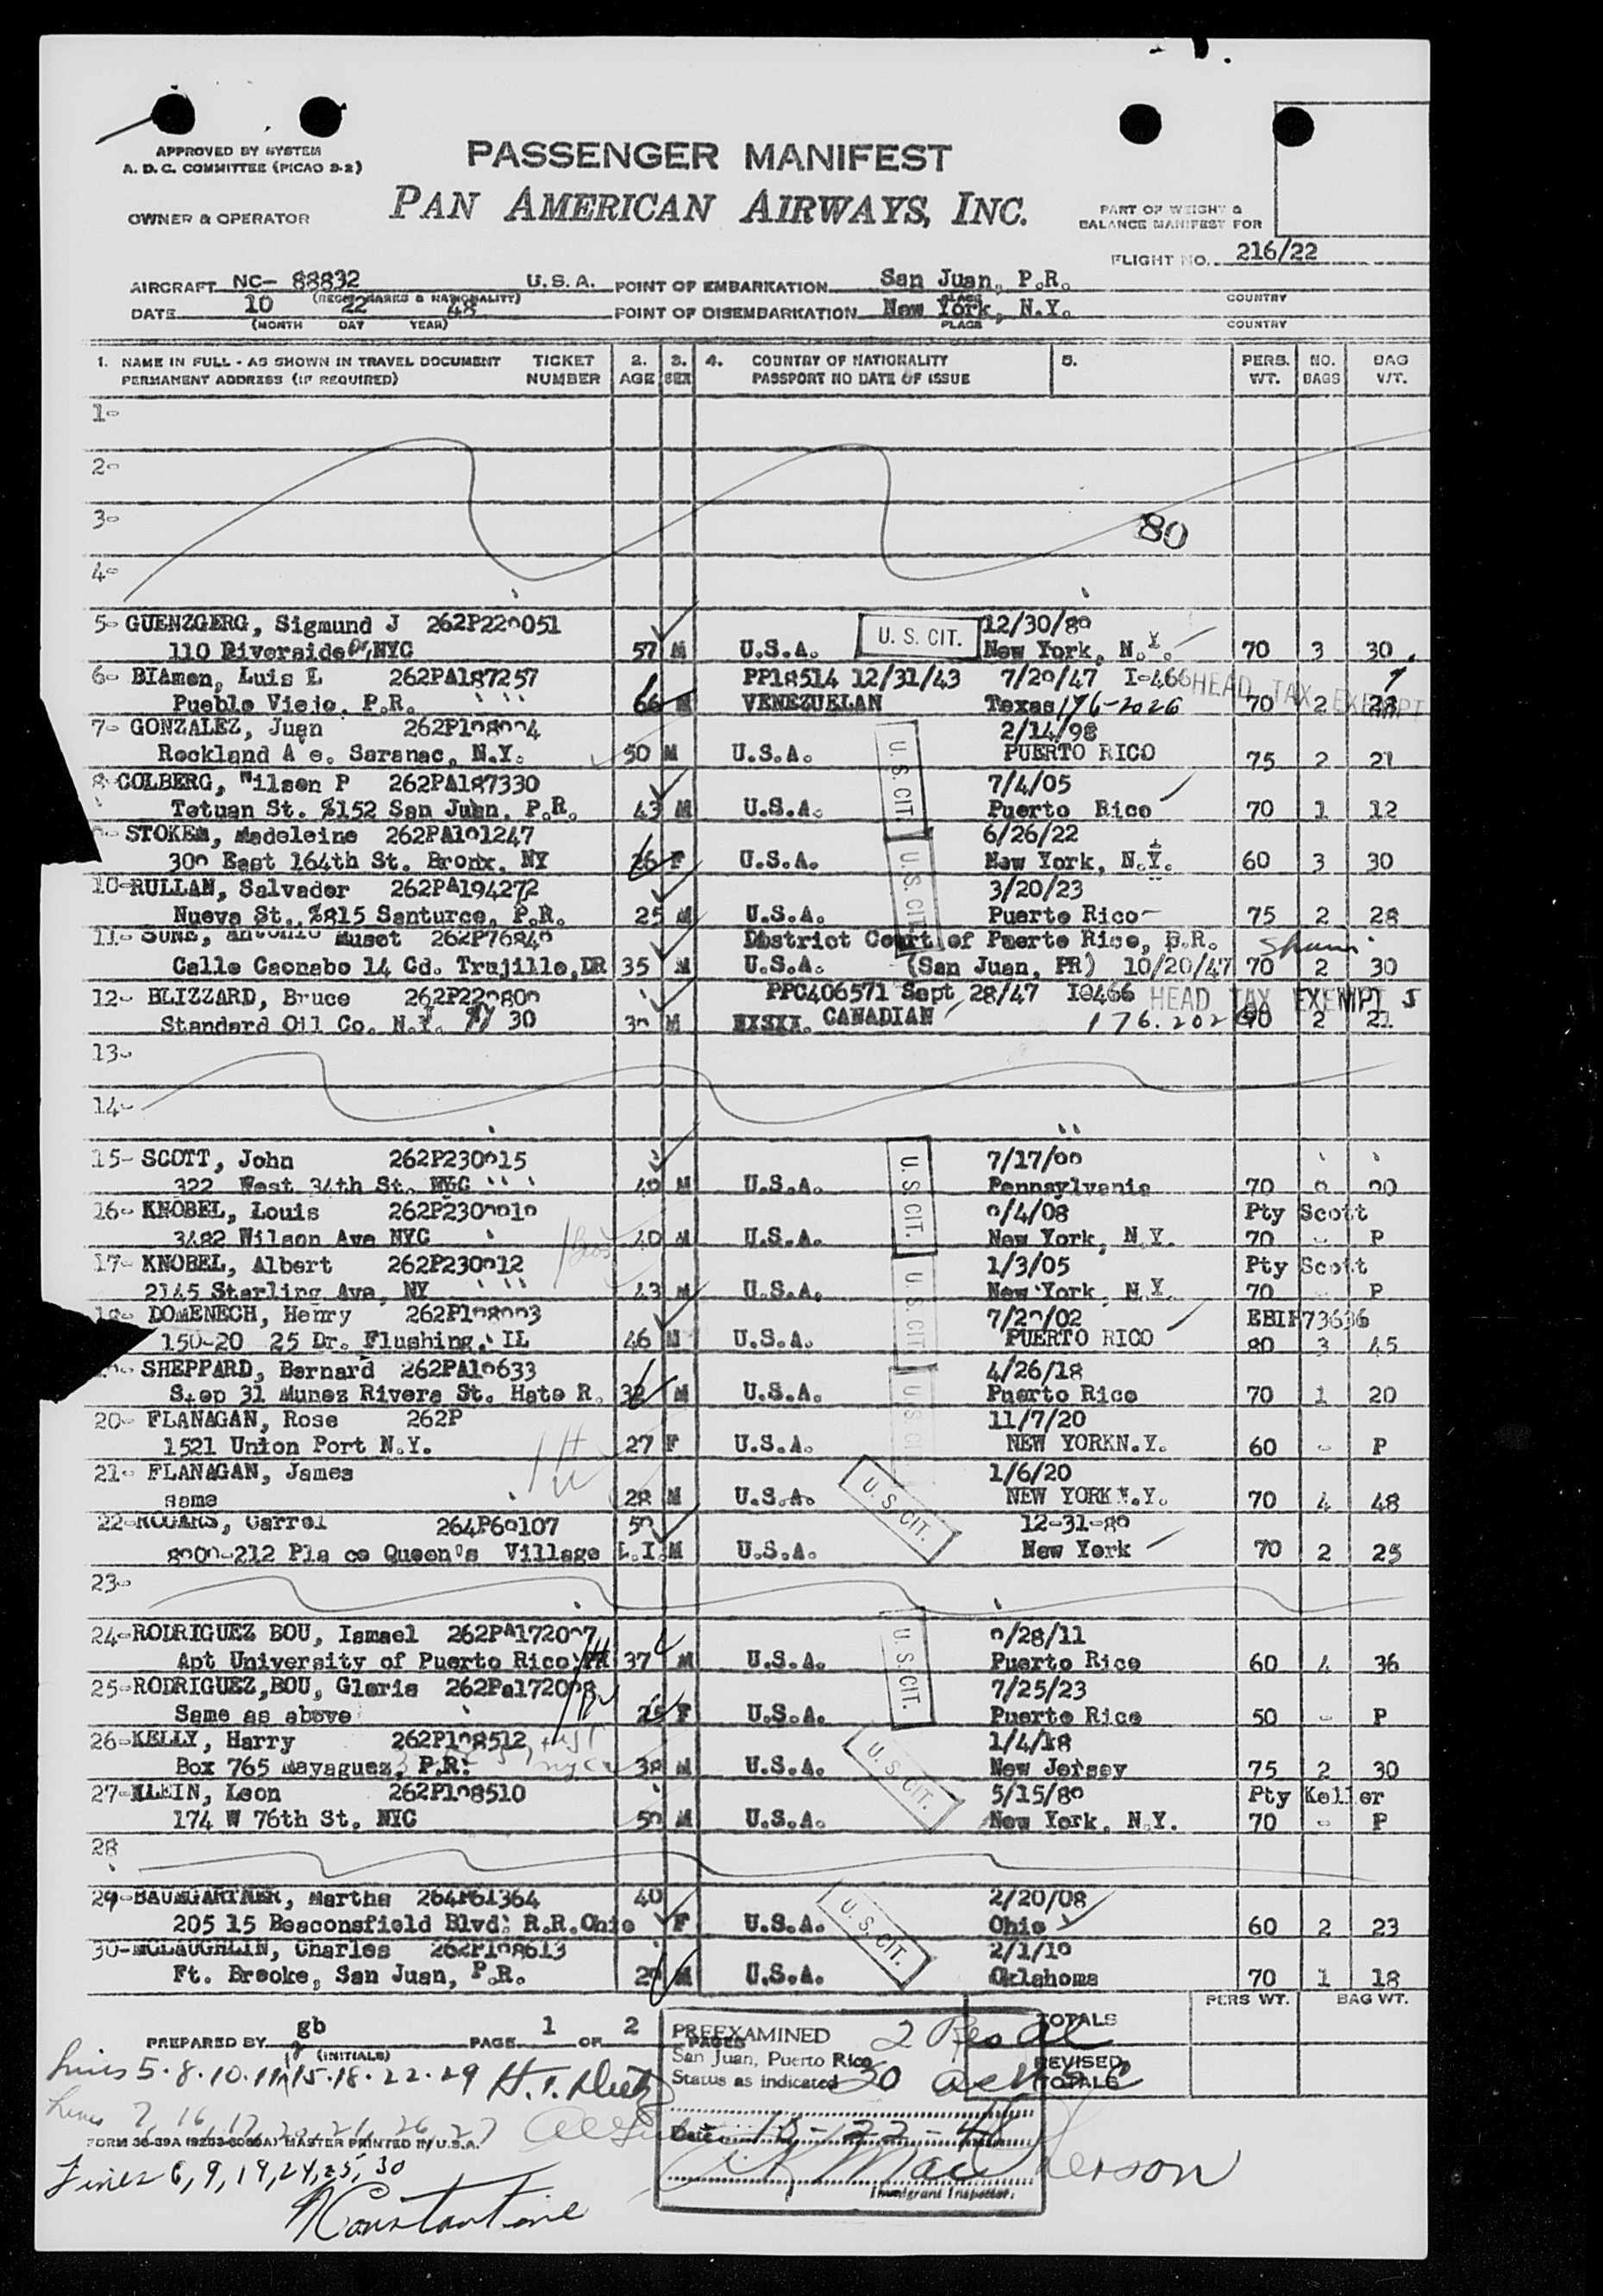 APPROVED BY SYSTEM
A. D. C. COMMITTEE (PICAO 9-2)
PASSENGER MANIFEST
PAN AMERICAN AIRWAYS, INC.
OWNER & OPERATOR
PART OF WEIGHT &
BALANCE MANIFEST FOR
FLIGHT NO. 216/22
AIRCRAFT NC- 88832 U.S.A. POINT OF EMBARKATION San Juan, P.R.
DATE 10 22 48 POINT OF DISEMBARKATION New York, N.Y.
(MONTH DAY YEAR) PLACE COUNTRY
1. NAME IN FULL - AS SHOWN IN TRAVEL DOCUMENT TICKET 2. 3. 4. COUNTRY OF NATIONALITY 5. PERS. NO. BAG
PERMANENT ADDRESS (IF REQUIRED) NUMBER AGE SEX PASSPORT NO DATE OF ISSUE WT. BAGS WT.
1-
2-
3- 80
4-
5- GUENZGERG, Sigmund J 262P220051 12/30/80
110 Riverside Dr NYC 57 M U.S.A. U. S. CIT. New York, N.Y. 70 3 30
6- BIAmon, Luis L 262PA187257 PP18514 12/31/43 7/20/47 I-466 HEAD TAX EXEMPT
Pueblo Viejo, P.R. 66 M VENEZUELAN Texas 176-2026 70 2 28
7- GONZALEZ, Juan 262P108004 2/14/98
Rockland A e. Saranac, N.Y. 50 M U.S.A. U. S. CIT. PUERTO RICO 75 2 21
8- COLBERG, Wilson P 262PA187330 7/4/05
Tetuan St. %152 San Juan, P.R. 43 M U.S.A. Puerto Rico 70 1 12
STOKEM, Madeleine 262PA101247 6/26/22
300 East 164th St. Bronx, NY 26 F U.S.A. U. S. CIT. New York, N.Y. 60 3 30
10- RULLAN, Salvador 262PA194272 3/20/23
Nueva St., %815 Santurce, P.R. 25 M U.S.A. Puerto Rico 75 2 28
11- SUNE, Antonio Muset 262P76840 District Court of Puerto Rico, P.R.
Calle Caonabo 14 Cd. Trujillo, DR 35 M U.S.A. (San Juan, PR) 10/20/47 70 2 30
12- BLIZZARD, Bruce 262P220800 PPC406571 Sept 28/47 I0466 HEAD TAX EXEMPT
Standard Oil Co. N.Y. NY 30 30 M CANADIAN 176.2026 70 2 21
13-
14-
15- SCOTT, John 262P230015 7/17/00
322 West 34th St. NYC 40 M U.S.A. U. S. CIT. Pennsylvania 70 0 00
16- KNOBEL, Louis 262P2300010 0/4/08 Pty Scott
3482 Wilson Ave NYC 40 M U.S.A. New York, N.Y. 70 - P
17- KNOBEL, Albert 262P230012 1/3/05 Pty Scott
2145 Starling Ave, NY 43 M U.S.A. U. S. CIT. New York, N.Y. 70 - P
18- DOMENECH, Henry 262P108003 7/20/02 EBIH73636
150-20 25 Dr. Flushing, IL 46 M U.S.A. PUERTO RICO 80 3 45
SHEPPARD, Bernard 262PA10633 4/26/18
Stop 31 Munez Rivera St. Hato R. 32 M U.S.A. U. S. CIT. Puerto Rico 70 1 20
20- FLANAGAN, Rose 262P 11/7/20
1521 Union Port N.Y. 27 F U.S.A. NEW YORKN.Y. 60 - P
21- FLANAGAN, James 1/6/20
same 28 M U.S.A. U. S. CIT. NEW YORK N.Y. 70 4 48
22- Carrol 264P60107 50 12-31-80
8000-212 Pla ce Queen's Village L.I. M U.S.A. New York 70 2 25
23-
24- RODRIGUEZ BOU, Ismael 262PA172007 0/28/11
Apt University of Puerto Rico 37 M U.S.A. U. S. CIT. Puerto Rico 60 4 36
25- RODRIGUEZ,BOU, Gloria 262Pa172008 7/25/23
Same as above F U.S.A. Puerto Rico 50 - P
26- KELLY, Harry 262P108512 1/4/18
Box 765 Mayaguez, P.R. 38 M U.S.A. U. S. CIT. New Jersey 75 2 30
27- KLEIN, Leon 262P108510 5/15/80 Pty Keller
174 W 76th St. NYC 50 M U.S.A. New York, N.Y. 70 - P
28
29- BAUMGARTNER, Martha 264P61364 40 2/20/08
205 15 Beaconsfield Blvd. R.R.Ohio F U.S.A. U. S. CIT. Ohio 60 2 23
30- MCLAUGHLIN, Charles 262P108613 2/1/10
Ft. Brooke, San Juan, P.R. 28 M U.S.A. Oklahoma 70 1 18
PERS WT. BAG WT.
PREPARED BY gb PAGE 1 OF 2 PAGES TOTALS
(INITIALS) REVISED TOTALS
PREEXAMINED
San Juan, Puerto Rico
Status as indicated
Lines 5.8.10.11.15.18.22.29
Lines 7, 16, 17, 20, 21, 26, 27
Date 10-22-48
FORM MASTER PRINTED IN U.S.A.
Lines 6, 9, 19, 24, 25, 30
Immigrant Inspector.
N Constantine